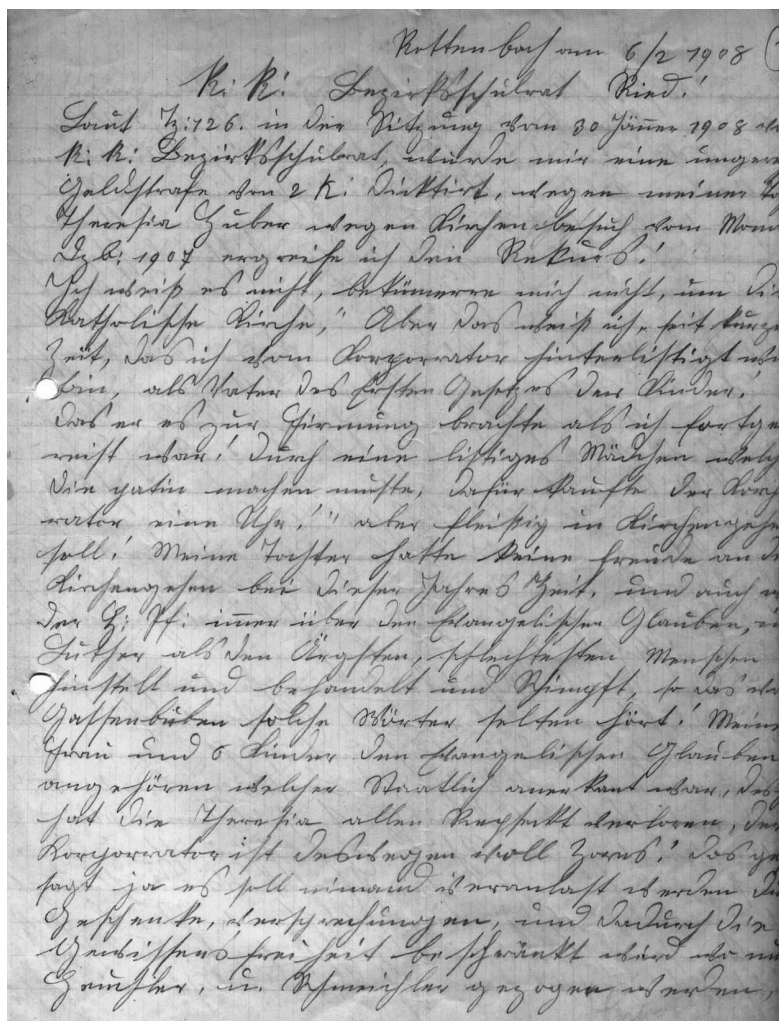 Rottenbach am 6/2 1908
K: K: Bezirksschulrat Ried!
Laut Z:126. in der Sitzung vom 30 Jänner 1908
K: K: Bezirksschulrat, wurde mir eine ungere
Geldstrafe von 2 K: Dicktirt, wegen meiner To
Theresia Huber wegen Kirchenbesuch vom Mona
Dzb: 1907 ergreife ich den Rekurs!
Ich weiß es nicht, bekümerre mich nicht, um di
Katholische Kirche," Aber das weiß ich, seit kurze
Zeit, das ich vom Korporrator hinterlistigt
bin, als Vater des Ersten Gesetzes der Kinder!
das er es zur Firmung brachte als ich fortge
reist war! durch eine listiges Mädchen welch
die patin machen muste, dafür kaufte der Korp
rator eine Uhr!" aber fleißig in Kirchengehe
soll! Meine Tochter hatte keine freude an d
Kirchengehen bei dieser Jahres Zeit, und auch
der H: Pf: immer über den Evangelischen Glauben,
Luther als den Ärgsten, schlechtesten Menschen
hinstelt und behandelt und Schimpft, so das
Gassenbuben solche Wörter selten hört! Meine
Frau und 6 Kinder den Evangelischen Glauben
angehören welcher Staatlich anerkant war, des
hat die Theresia allen Repsekt verloren, der
Korporrator ist deswegen voll Zorns! das ge
sagt ja es soll niemand veranlast werden du
Geschenke, versprechungen, und dadurch die
Gewissensfreiheit beschränkt wird wo nu
Heuchler, u. Schmeichler gezogen werden,